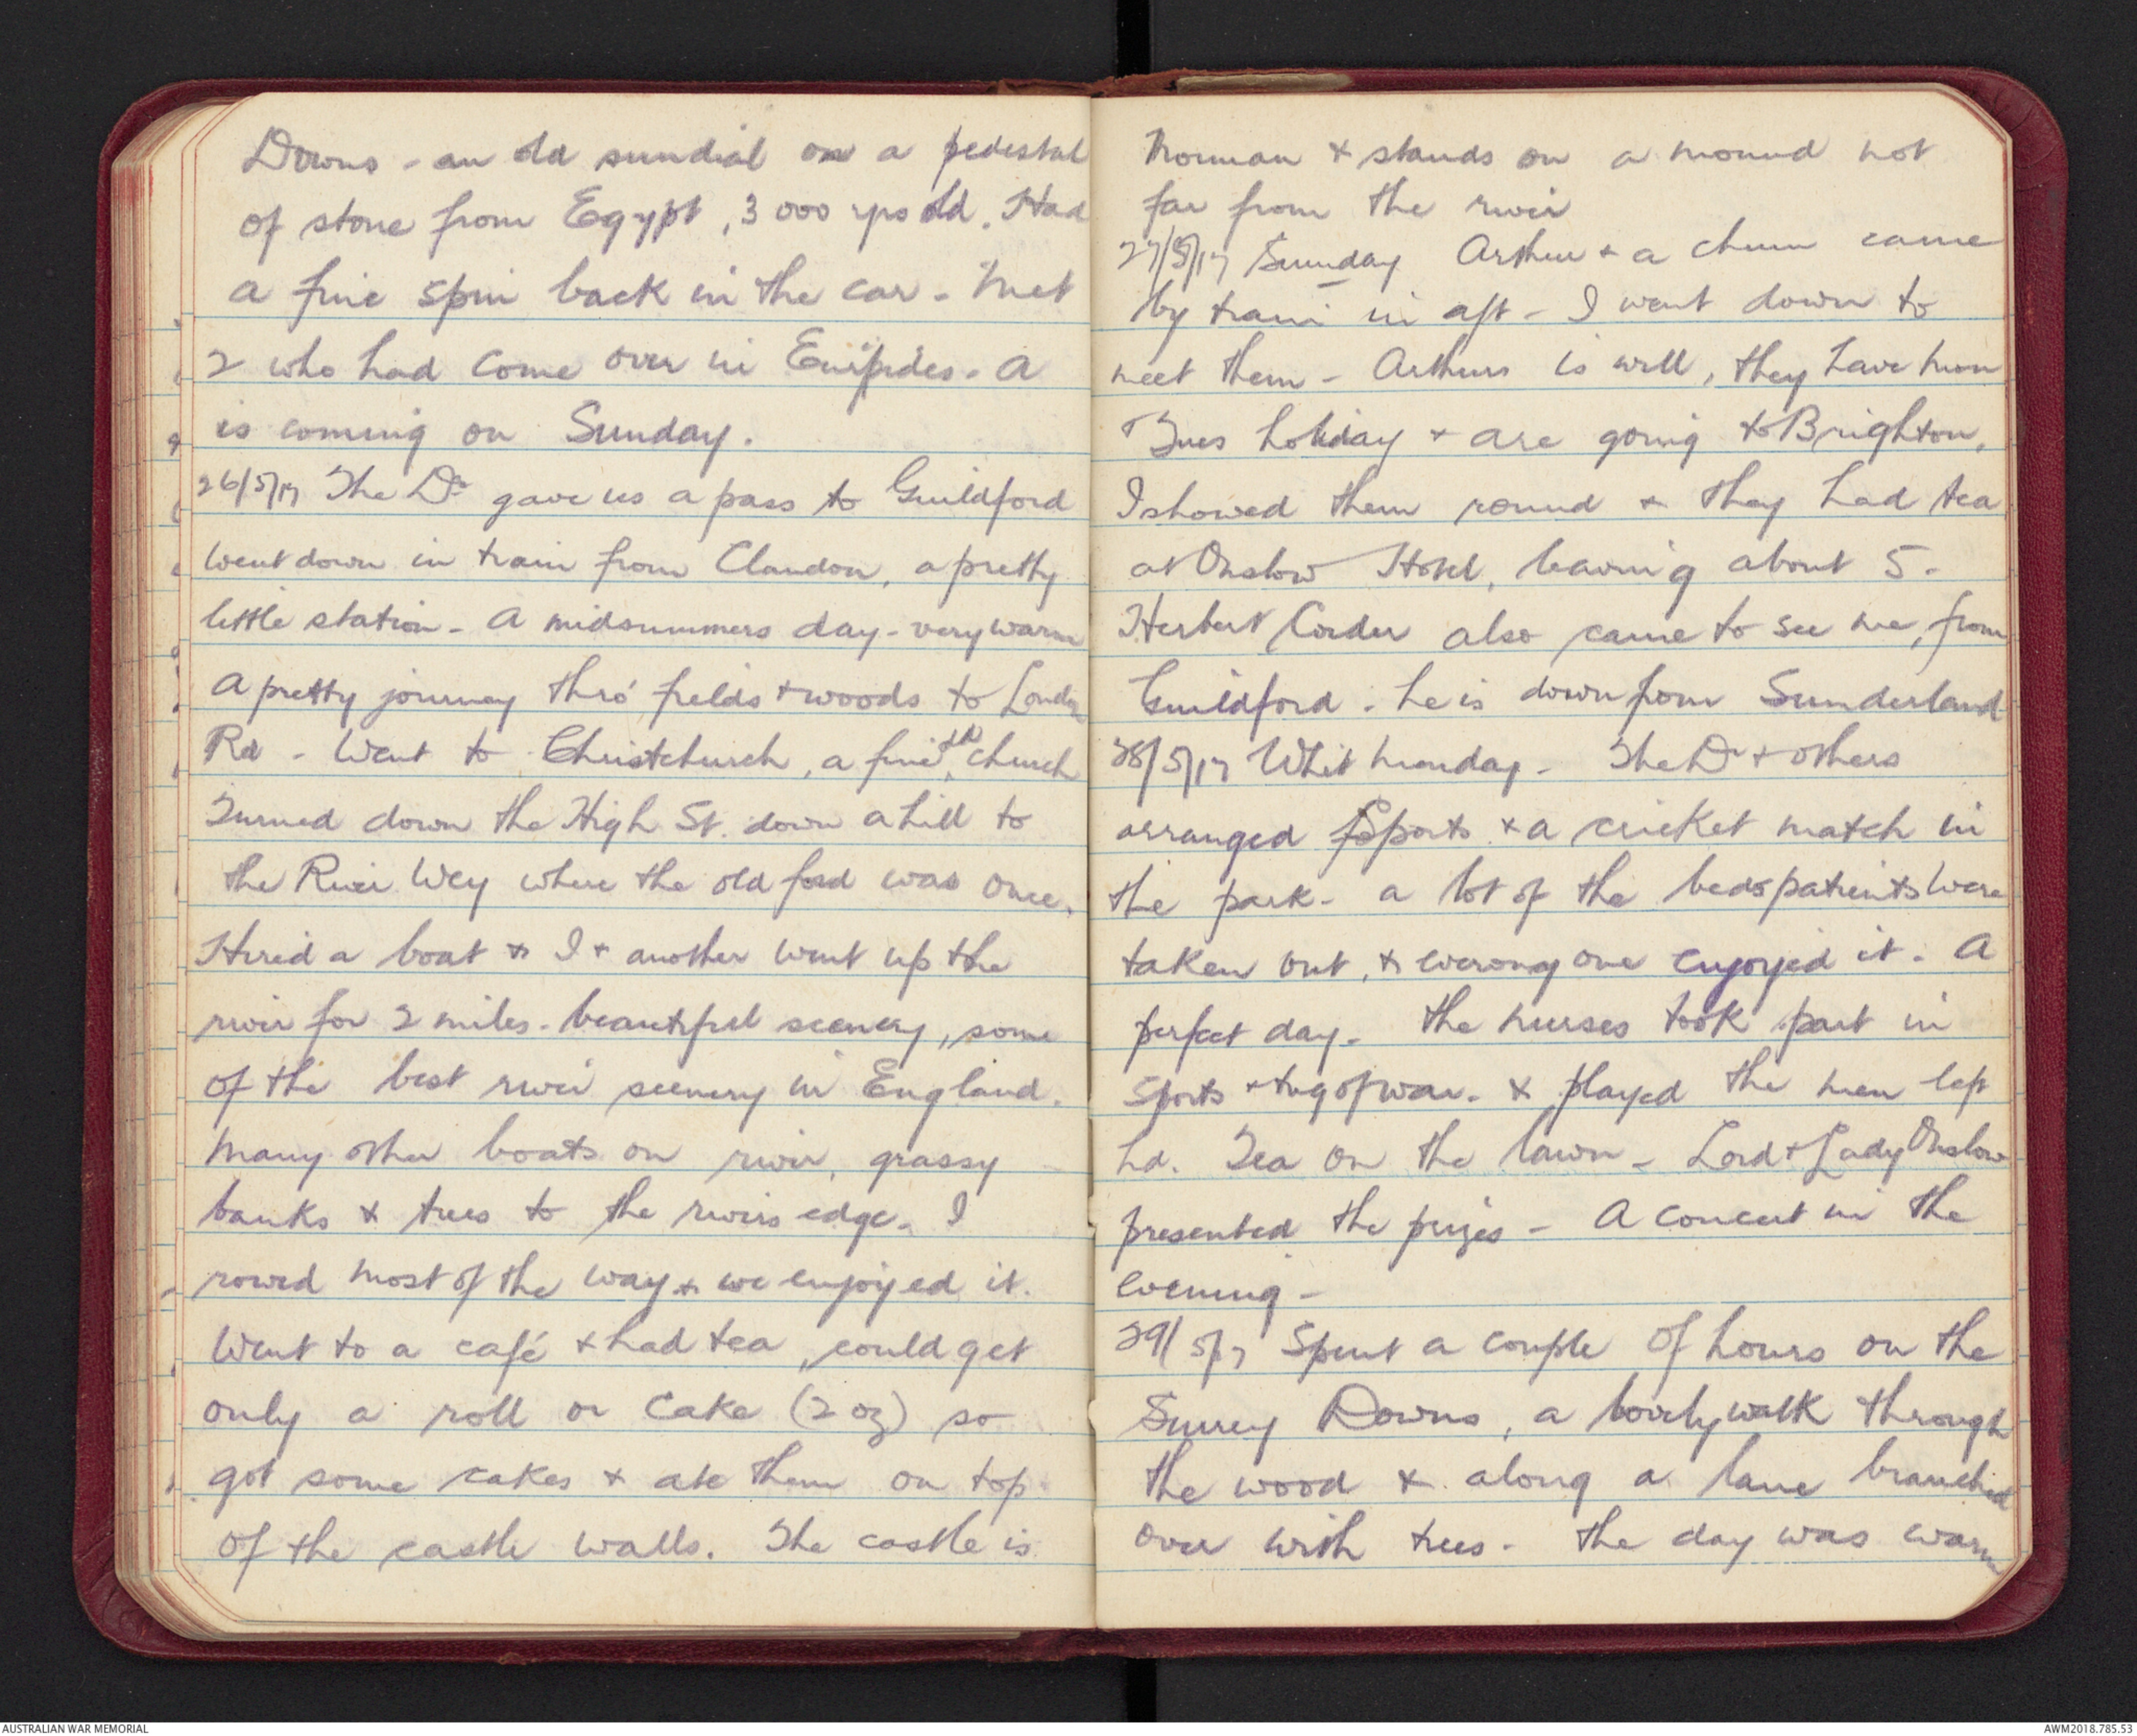 Downs - an old sundial on a pedestal
of stone from Egypt, 3 000 yrs old. Had
a fine spin back in the car - Met
2 who had come over in Euripides. A
is coming on Sunday.
26/5/17 The Dr gave us a pass to Guildford
Went down in train from Clandon, a pretty
little station - A midsummers day - very warm
A pretty journey thro' fields + woods to London
Rd - Went to Christchurch, a fine old church
Turned down the High St. down a hill to
the River Wey where the old ford was once.
Hired a boat & I + another went up the
river for 2 miles - beautiful scenery, some
of the best river scenery in England.
Many other boats on river, grassy
banks & trees to the rivers edge. I
rowed most of the way & we enjoyed it.
Went to a café + had tea, could get
only a roll or cake (2 oz) so
got some cakes + ate them on top
of the castle walls. The castle is
Norman + stands on a mound not
far from the river
27/5/17 Sunday Arthur + a chum came
by train in aft - I went down to
meet them - Arthurs is well, they have mon
+ Tues holiday + are going to Brighton,
I showed them round & they had tea
at Onslow Hotel, leaving about 5.
Herbert Corder also came to see me, from
Guildford. he is down from Sunderland
28/5/17 Whit Monday - The Dr + others
arranged Sports + a cricket match in
the park - a lot of the bed patients were
taken out, & everyone enjoyed it. A
perfect day. The nurses took part in
sports + tug of war. & played the men left
hd. Tea on the lawn - Lord + Lady Onslow
presented the prizes - A concert in the
evening -
29/5/17 Spent a couple of hours on the
Surrey Downs, a lovely walk through
the wood & along a lane branched
over with trees. The day was warm
AUSTRALIAN WAR MEMORIAL
AWM2018.785.53